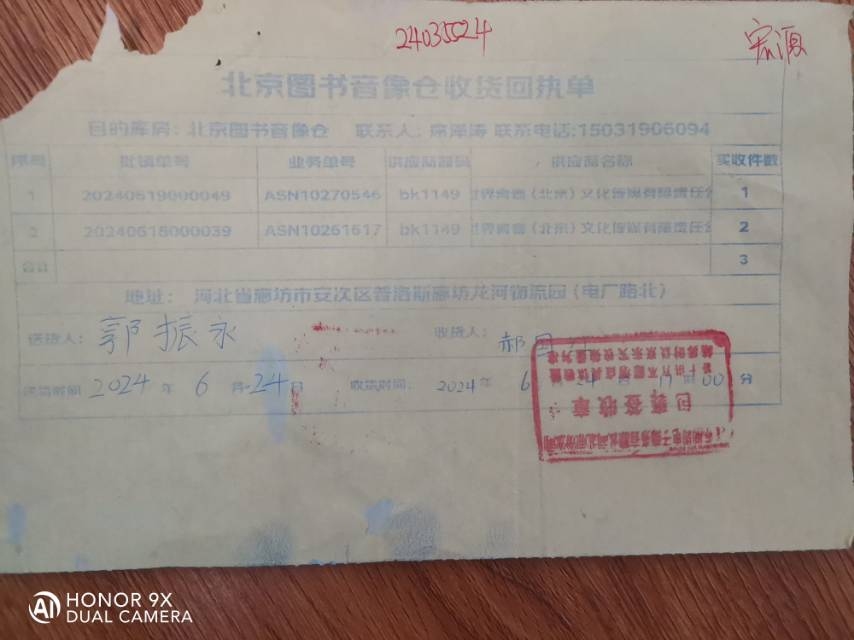 24035524
宏源
北京图书音像仓收货回执单
目的库房：北京图书音像仓 联系人：席泽涛 联系电话:15031906094
序号 批销单号 业务单号 供应商简码 供应商名称 实收件数
1 20240619000049 ASN10270546 bk1149 世界青壹（北京）文化传媒有限责任公 1
2 20240618000039 ASN10261617 bk1149 世界青壹（北京）文化传媒有限责任公 2
合计 3
地址： 河北省廊坊市安次区普洛斯廊坊龙河物流园（电厂路北）
送货人： 郭振永 收货人： 郝国
送货时间 2024 年 6 月 24 日 收货时间： 2024 年 6 24 17 时 00 分
包裹签收章
HONOR 9X
DUAL CAMERA